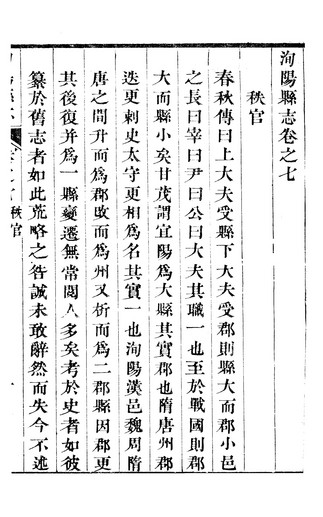 洵陽縣志卷之七
秩官
春秋傳曰上大夫受縣下大夫受郡則縣大而郡小邑
之長曰宰曰尹曰公曰大夫其職一也至於戰國則郡
大而縣小矣甘茂謂宜陽爲大縣其實郡也隋唐州郡
迭更刺史太守更相爲名其實一也洵陽漢邑魏周隋
唐之間升而爲郡改而爲州又析而爲二郡縣因郡更
其後復并爲一縣變遷無常閱人多矣考於史者如彼
纂於舊志者如此荒略之咎誠未敢辭然而失今不述
秩官